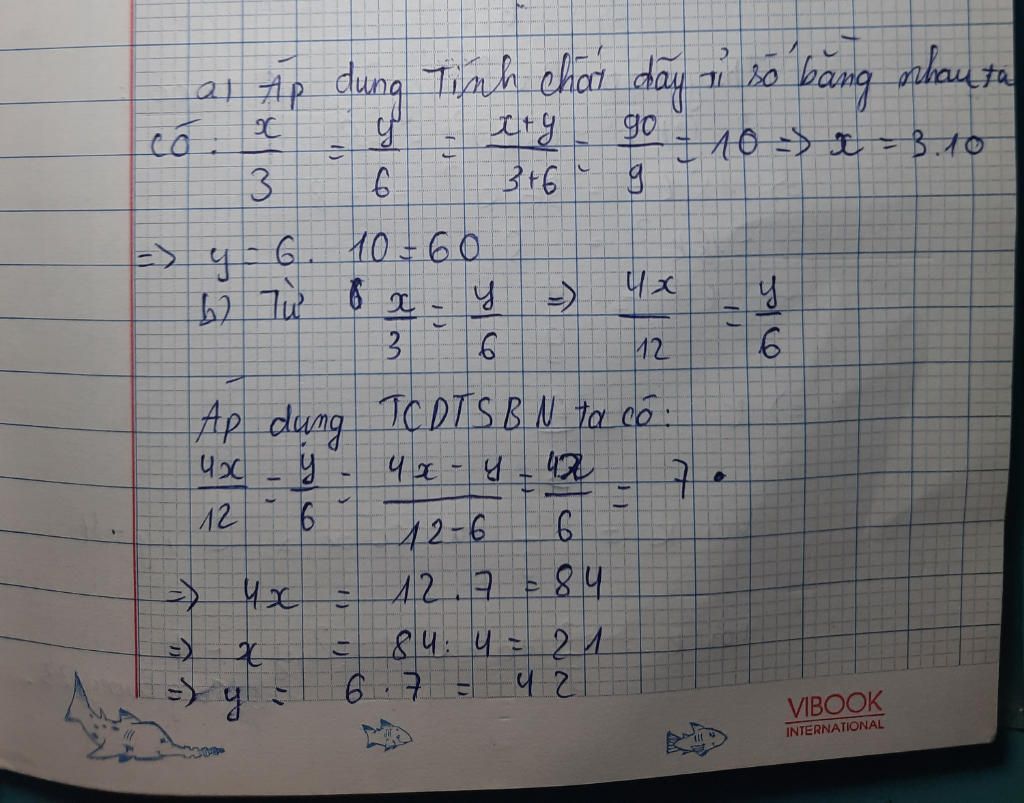 a) Áp dụng Tính chất dãy tỉ số bằng nhau ta
có: x/3 = y/6 = x+y/3+6 = 90/9 = 10 => x = 3.10
=> y = 6. 10 = 60
b) Từ x/3 = y/6 => 4x/12 = y/6
Áp dụng TCDTSBN ta có:
4x/12 = y/6 = 4x - y/12-6 = 42/6 = 7.
=> 4x = 12.7 = 84
=> x = 84: 4 = 21
=> y = 6.7 = 42
VIBOOK
INTERNATIONAL